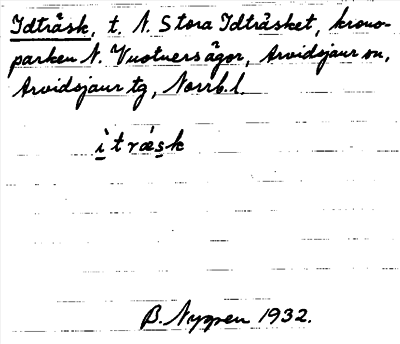 Idträsk, t. N. Stora Idträsket, krono-
parken N. Vuotners ägor, Arvidsjaur sn,
Arvidsjaur tg, Norrb. l.
ìtræsk
B. Nygren 1932.